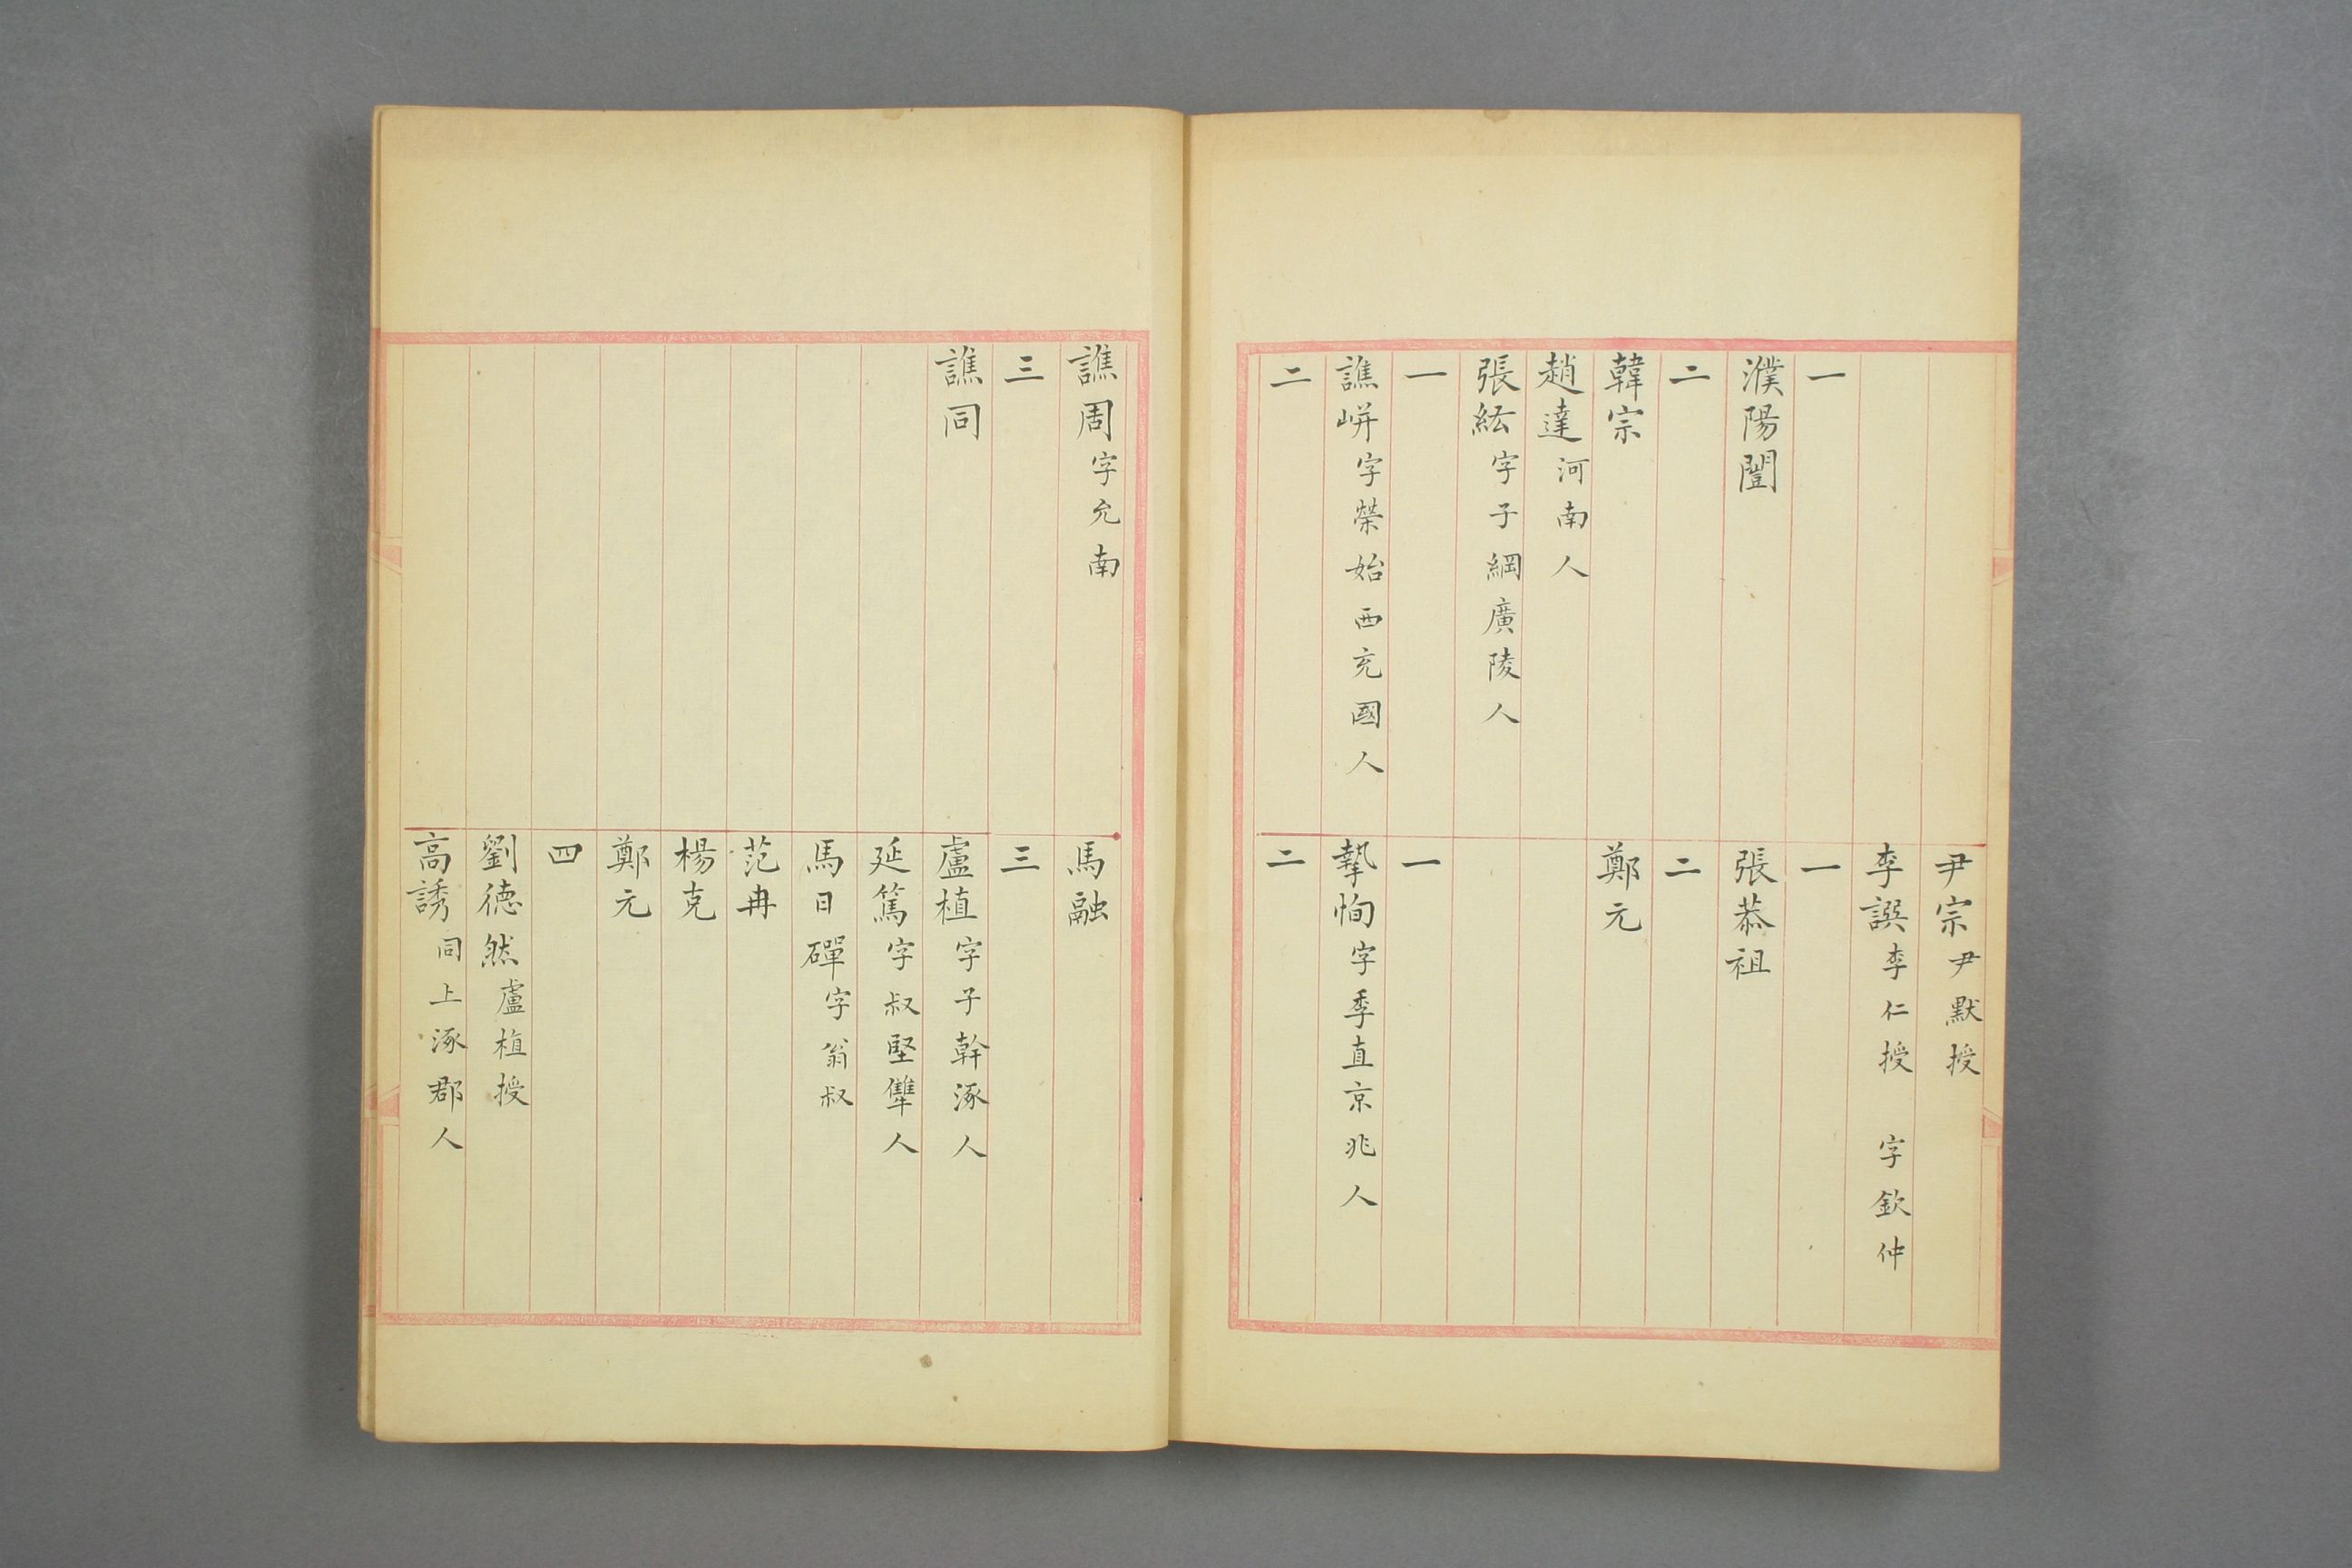 一
濮陽闓
二
韓宗
趙達河南人
張紘字子綱廣陵人
一
譙𡺸字榮始西充國人
二
尹宗尹默授
李譔李仁授 字欽仲
一
張恭祖
二
鄭元
一
摯恂字季直京兆人
二
譙周字允南
三
譙同
馬融
三
盧植字子幹涿人
延篤字叔堅犨人
馬日磾字翁叔
范冉
楊克
鄭元
四
劉德然盧植授
高誘同上涿郡人